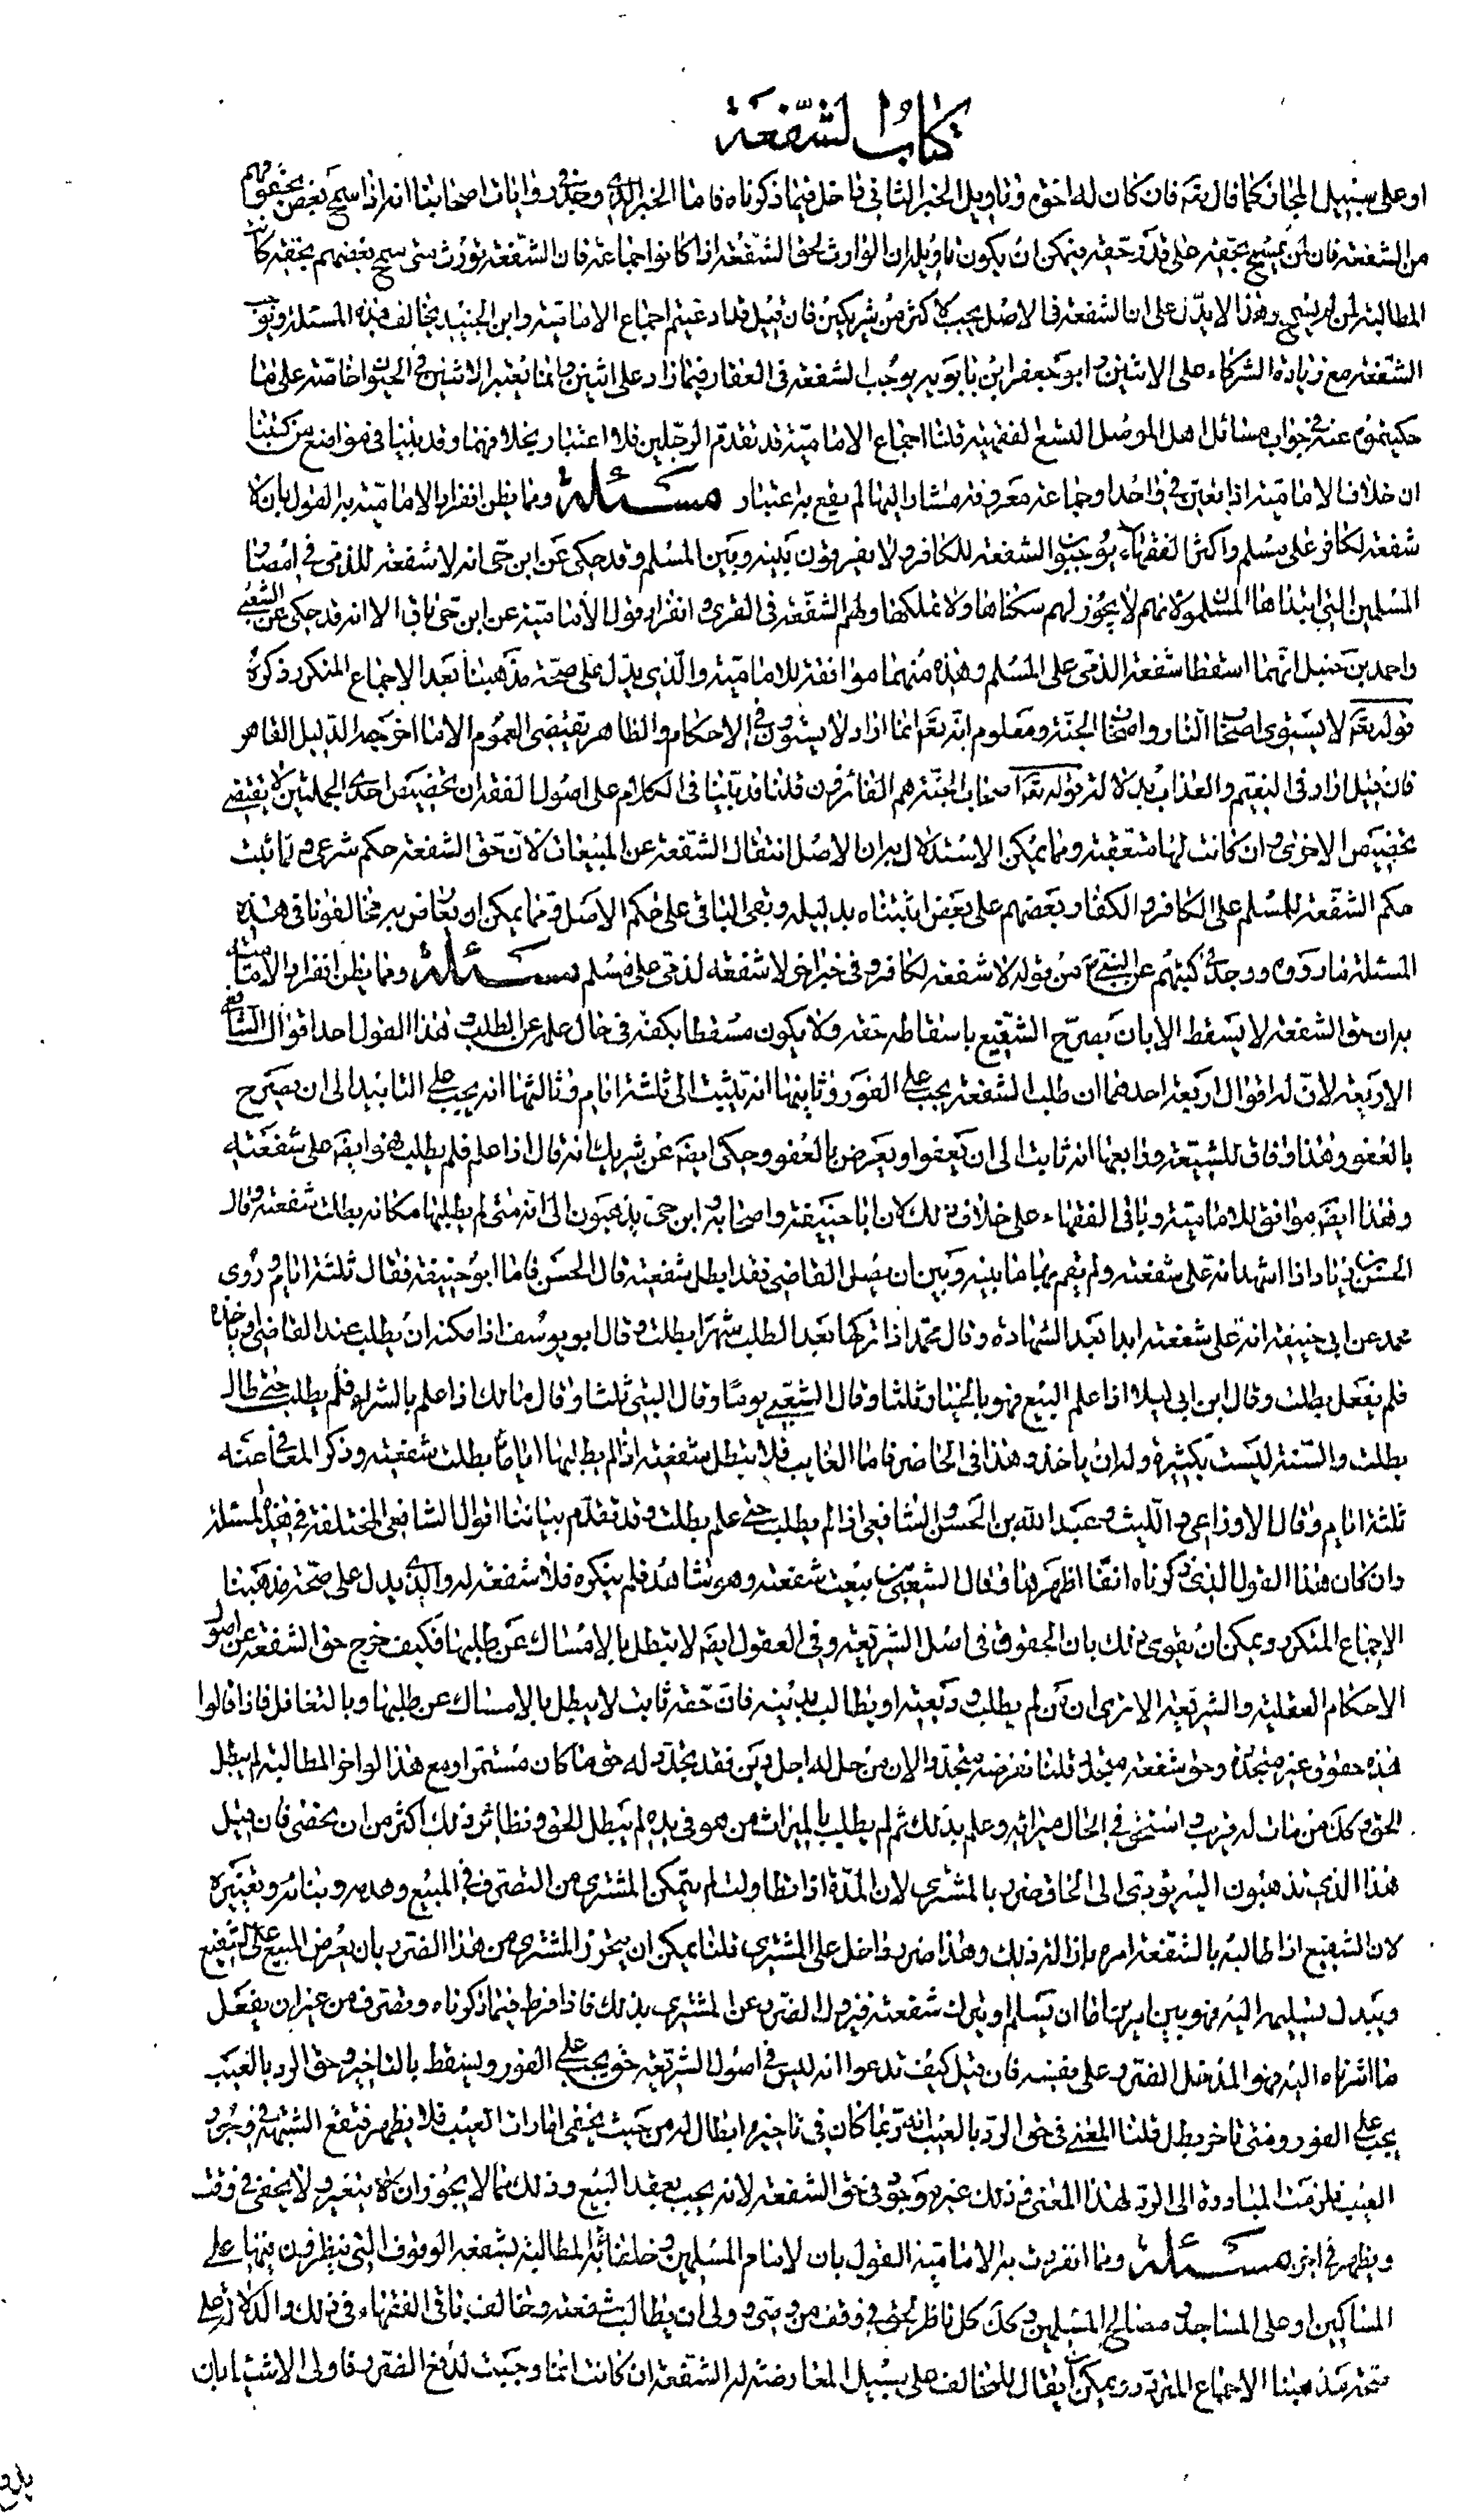 كتاب الشفعة
او على سبيل المجاز كما قال تعه فان كان له اخوة وتاويل الخبر الثاني داخل فيما ذكرناه فاما الخبر الذي وجد في روايات اصحابنا انه اذا سمح بعض بحقوقهم
من الشفعة فان لمن لم يسمح بحقه على قدر حقه فيمكن ان يكون تاويله ان الوارث لحق الشفعة اذا كانوا جماعة فان الشفعة تورث متى سمح بعضهم بحقه كانت
المطالبة لمن لم يسمح وهذا لا يدل على ان الشفعة في الاصل يجب لاكثر من شريكين فان قيل قد ادعيتم اجماع الامامية وابن الجنيد يخالف في هذه المسئلة ويوجب
الشفعة مع زيادة الشركاء على الاثنين وابو جعفر ابن بابويه يوجب الشفعة في العقار فيما زاد على اثنين وانما يعتبر الاثنين في الحيوان خاصة على ما
حكيتموه عنه في جواب مسائل اهل الموصل التسع الفقهية قلنا اجماع الامامية قد تقدم الرجلين فلا اعتبار بخلافهما وقد بينا في مواضع من كتبنا
ان خلاف الامامية اذا تعين في واحد او جماعة معروفة مشار اليها لم يقع به اعتبار مسئلة ومما يظن انفراد الامامية به القول بان لا
شفعة لكافر على مسلم واكثر الفقهاء يوجبون الشفعة للكافر ولا يفرقون بينه وبين المسلم وقد حكى عن ابن حي انه لا شفعة للذمي في امصار
المسلمين التي ابتداها المسلمون لانهم لا يجوز لهم سكناها ولا تملكها ولهم الشفعة في القرى وانفراد قول الامامية عن ابن حي باق الا انه قد حكى عن الشعبي
واحمد بن حنبل انهما اسقطا شفعة الذمي على المسلم وهذه منهما موافقة للامامية والذي يدل على صحة مذهبنا بعد الاجماع المتكرر ذكره
قوله تعه لا يستوي اصحاب النار واصحاب الجنة ومعلوم انه تعه انما اراد لا يستوون في الاحكام والظاهر يقتضي العموم الا ما اخرجه الدليل القاهر
فان قيل اراد في النعيم والعذاب بدلالة قوله تعه اصحاب الجنة هم الفائزون قلنا قد بينا في الكلام على اصول الفقه ان تخصيص احدى الجملتين لا يقتضي
تخصيص الاخرى وان كانت لها متعقبة ومما يمكن الاستدلال به ان الاصل انتفاء الشفعة عن المبيعات لان حق الشفعة حكم شرعي ولما ثبت
حكم الشفعة للمسلم على الكافر والكفار بعضهم على بعض اثبتناه بدليله وبقي الباقي على حكم الاصل ومما يمكن ان يعارض به مخالفونا في هذه
المسئلة ما رووه ووجد في كتبهم عن النبي ص من قوله لا شفعة لكافر وفي خبر اخر لا شفعة لذمي على مسلم مسئلة ومما يظن انفراد الامامية
به ان حق الشفعة لا يسقط الا بان يصرح الشفيع باسقاطه حقه ولا يكون مسقطا بكفه في حال علمه عن الطلب وهذا القول احد اقوال الشافعي
الاربعة لان له اقوال اربعة احدها ان طلب الشفعة يجب على الفور وثانيها انه يثبت الى ثلثة ايام وثالثها انه يجب على التابيد الى ان يصرح
بالعفو وهذا وفاق للشيعة ورابعها انه ثابت الى ان يعفوا ويعرض بالعفو وحكى ايضا عن شريك انه قال اذا علم فلم يطلب فهو ايضا على شفعته
وهذا ايضا موافق للامامية وباقي الفقهاء على خلاف ذلك لان ابا حنيفة واصحابه وابن حي يذهبون الى انه متى لم يطلبها مكانه بطلت شفعته وقال
الحسن بن زياد اذا اشهد انه على شفعته ولم يقم بها ما بينه وبين ان يصل القاضي فقد ابطل شفعته قال الحسن فاما ابو حنيفة فقال ثلثة ايام وروى
محمد عن ابي حنيفة انه على شفعته ابدا بعد الشهادة وقال محمد اذا تركها بعد الطلب شهرا بطلت وقال ابو يوسف اذا امكنه ان يطلب عند القاضي او ياخذه
فلم يفعل بطلت وقال ابن ابي ليلى اذا علم البيع فهو بالخيار ثلثا وقال الشعبي يوما وقال البتي ثلثا وقال مالك اذا علم بالشراء فلم يطلب حتى طال
بطلت والسنة ليست بكثيرة وله ان ياخذ وهذا في الحاضر فاما الغايب فلا يبطل شفعته اذا لم يطلبها اياما بطلت شفعته وذكر المعافى عنه
ثلثة ايام وقال الاوزاعي والليث وعبيد الله بن الحسن والشافعي اذا لم يطلب حتى علم بطلت وقد تقدم بياننا اقوال الشافعي المختلفة في هذه المسئلة
وان كان هذا القول الذي ذكرناه انفا اظهرها وقال الشعبي من بيعت شفعته وهو شاهد فلم ينكره فلا شفعة له والذي يدل على صحة مذهبنا
الاجماع المتكرر ويمكن ان يقوى ذلك بان الحقوق في اصل الشريعة وفي العقول ايضا لا يبطل بالامساك عن طلبها فكيف خرج حق الشفعة عن اصول
الاحكام العقلية والشرعية الا ترى ان من لم يطلب وديعته او يطالب بدينه فان حقه ثابت لا يبطل بالامساك عن طلبها وبالتغافل فاذا قالوا
هذه حقوق غير متجددة وحق شفعة متجدد قلنا نفرضه متجددا لان من حل له اجل دين فقد يجدد له حق ما كان مستمرا ومع هذا لو اخر المطالبة لم يبطل
الحق وكك من مات له قريب واستحق في الحال ميراثه وعلم بذلك ثم لم يطلب بالميراث من هو في يده لم يبطل الحق ونظائر ذلك اكثر من ان يحصى فان قيل
هذا الذي تذهبون اليه يؤدي الى الحاق ضرر بالمشتري لان المدة اذا تطاولت لم يتمكن المشتري من التصرف في المبيع وهدمه وبنائه وتغييره
لان الشفيع اذا طالبه بالشفعة امره بازالة ذلك وهذا ضرر داخل على المشتري قلنا يمكن ان يتحرز المشتري من هذا الضرر بان يعرض المبيع على الشفيع
ويبذل تسليمه اليه فهو بين امرين اما ان يتسلم او يترك شفعته فيزول الضرر عن المشتري بذلك فاذا فرط فيما ذكرناه وتصرف من غير ان يفعل
ما اشرناه اليه فهو المدخل الضرر على نفسه فان قيل كيف تدعوا انه ليس في اصول الشريعة حق يجب على الفور ويسقط بالتاخير وحق الرد بالعيب
يجب على الفور ومتى تاخر بطل قلنا المعنى في حق الرد بالعيب انه ربما كان في تاخيره ابطال له من حيث يخفى امارات العيب فلا يظهر فتقع الشبهة في وجود
العيب فلزمت المبادرة الى الرد لهذا المعنى وذلك غير موجود في حق الشفعة لانه يجب بعقد البيع وذلك مما لا يجوز ان يتغير ولا يخفى في وقت
ويظهر في اخر مسئلة ومما انفردت به الامامية القول بان لامام المسلمين وخلفائه المطالبة بشفعة الوقوف التي ينظرون فيها على
المساكين او على المساجد ومصالح المسلمين وكك كل ناظر بحق في وقف من وصي وولي ان يطالب بشفعته وخالف باقي الفقهاء في ذلك والدلالة على
صحة مذهبنا الاجماع المتردد ويمكن ان يقال للمخالف على سبيل المعارضة له الشفعة ان كانت انما وجبت لدفع الضرر فاولى الاشياء بان